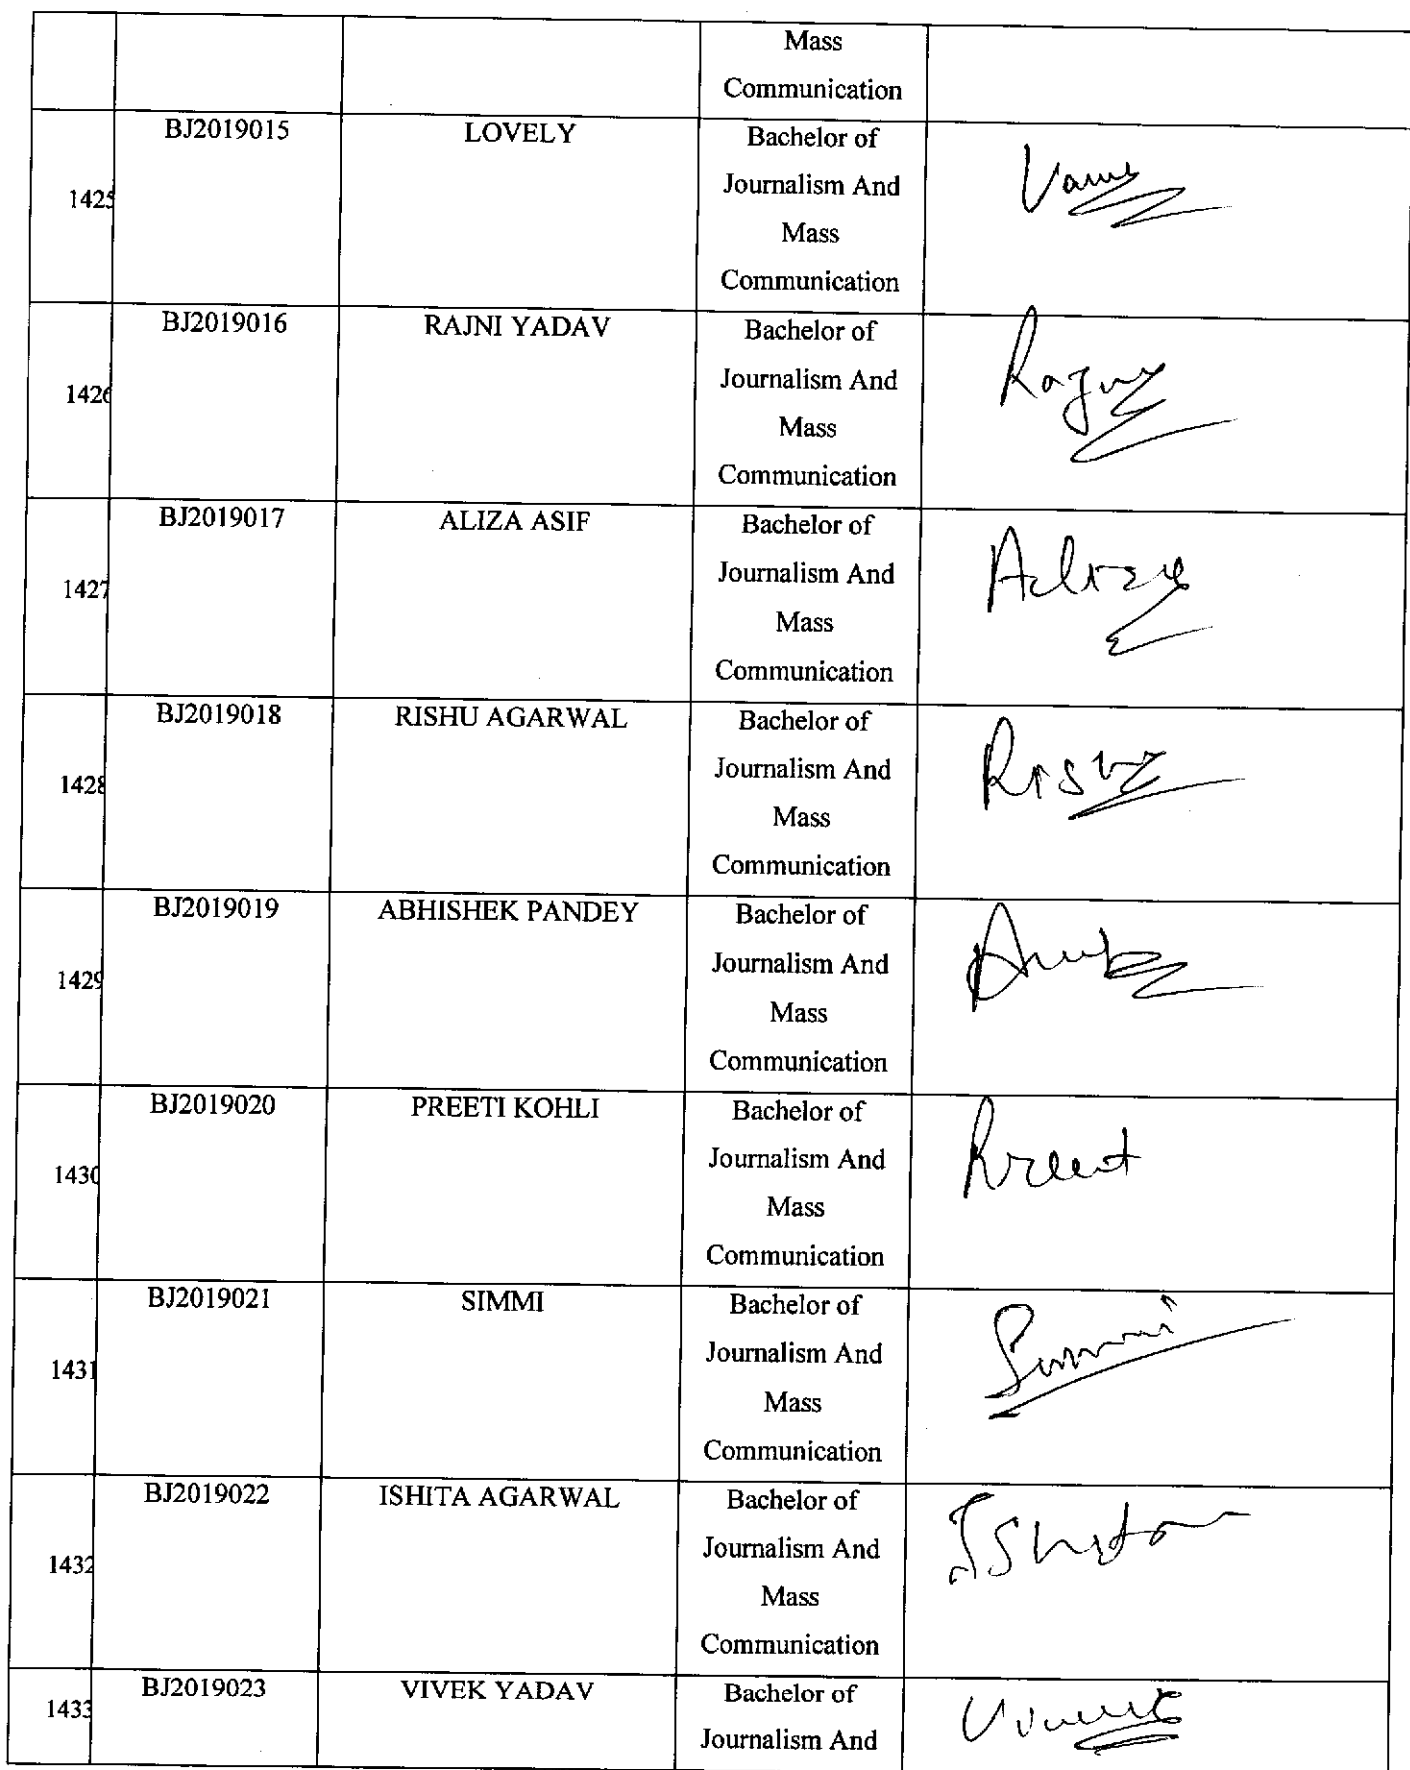 Mass
Communication
BJ2019015 LOVELY Bachelor of
1425 Journalism And
Mass
Communication
BJ2019016 RAJNI YADAV Bachelor of
1426 Journalism And
Mass
Communication
BJ2019017 ALIZA ASIF Bachelor of
1427 Journalism And
Mass
Communication
BJ2019018 RISHU AGARWAL Bachelor of
1428 Journalism And
Mass
Communication
BJ2019019 ABHISHEK PANDEY Bachelor of
1429 Journalism And
Mass
Communication
BJ2019020 PREETI KOHLI Bachelor of
1430 Journalism And
Mass
Communication
BJ2019021 SIMMI Bachelor of
Simmi
1431 Journalism And
Mass
Communication
BJ2019022 ISHITA AGARWAL Bachelor of
Ishita
1432 Journalism And
Mass
Communication
BJ2019023 VIVEK YADAV Bachelor of
1433 Journalism And